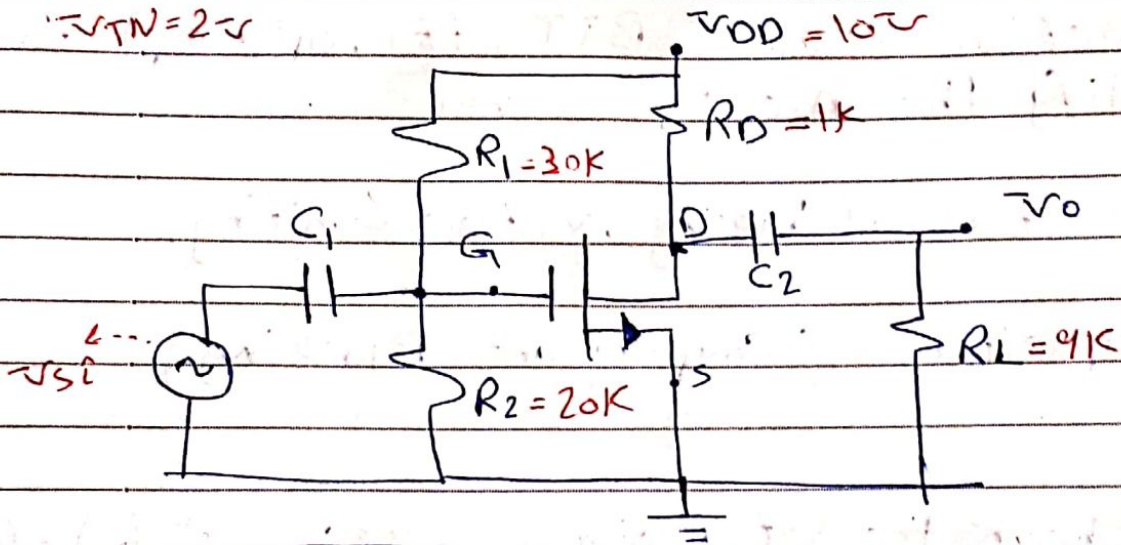 VTN=2v VDD=10v
RD=1K
R1=30K
C1 G D C2 Vo
vsi RL=9K
R2=20K S